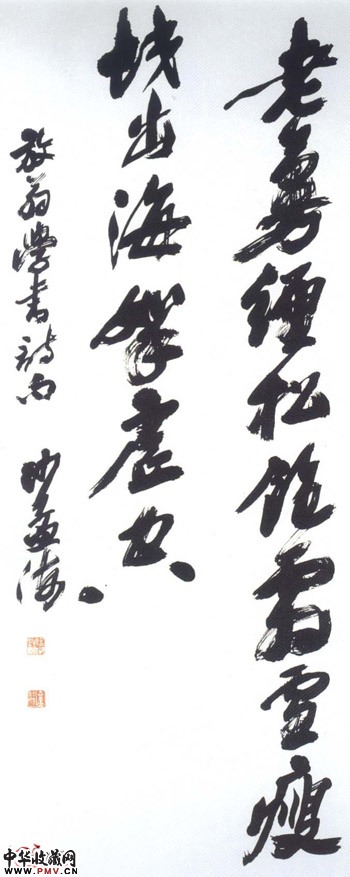 老蔓纏松飽霜雪瘦
蛟出海拏虛空
放翁學書詩句 沙孟海
中华收藏网
www.PMV.CN